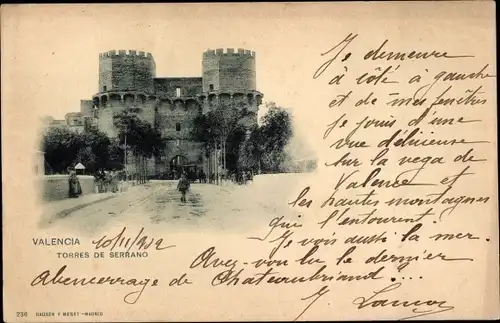 Je demeure
à côté à gauche
et de mes fenêtres
Je jouis d'une
vue délicieuse
sur la vega de
Valence et
les hautes montagnes
qui l'entourent
Je vois aussi la mer.
Avez-vous lu le dernier
Abencerrage de Chateaubriand...
J. Lamor
VALENCIA
10/11/912
TORRES DE SERRANO
236 HAUSER Y MENET.-MADRID